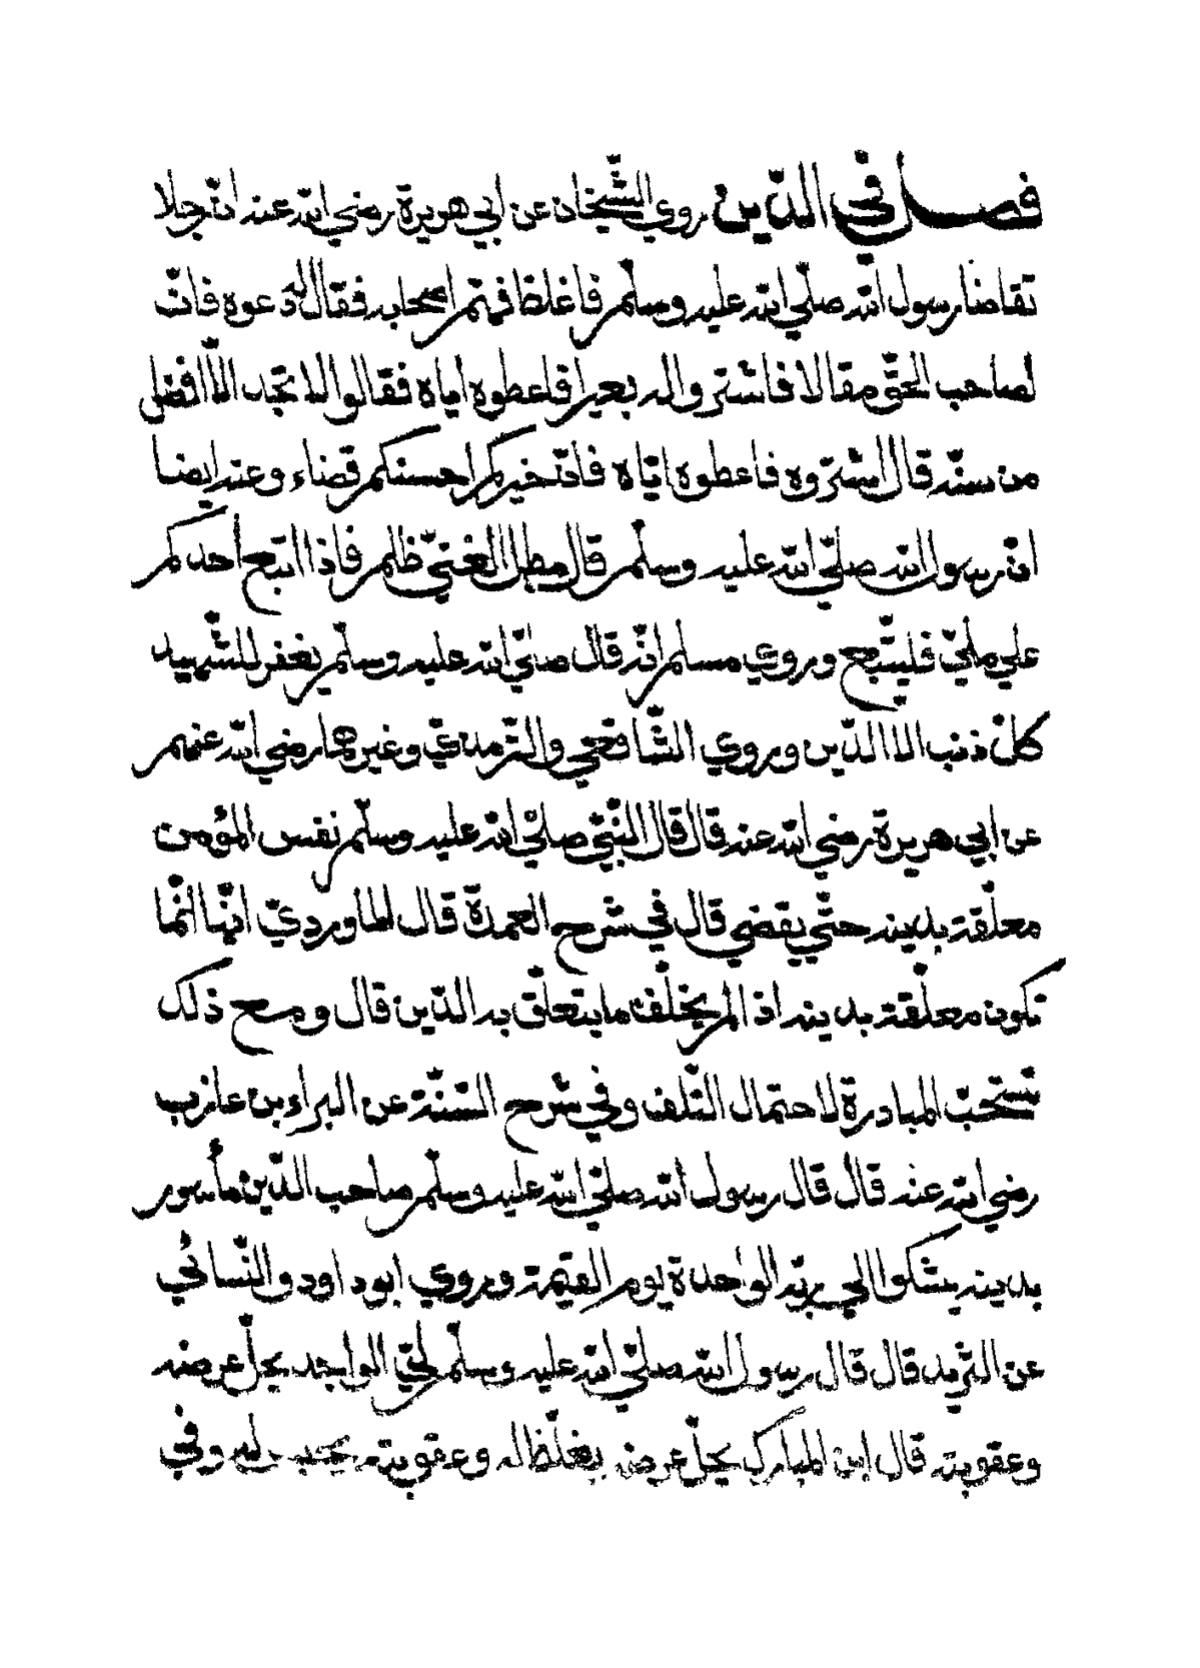 فصل في الدّين روي الشّيخان عن ابي هريرة رضي الله عنه انّ رجلا
تقاضا رسول الله صلّي الله عليه وسلّم فاغلظ فهمّ اصحابه فقال دعوه فانّ
لصاحب الحقّ مقالا فاشتروا له بعيرا فاعطوه اياه فقالوا لا نجد الّا افضل
من سنّه قال اشتروه فاعطوه ايّاه فانّ خيركم احسنكم قضاء وعنه ايضا
انّ رسول الله صلّي الله عليه وسلّم قال مطل الغنيّ ظلم فاذا اتبع أحدكم
علي مليّ فليتّبع وروي مسلم انّه قال صلّي الله عليه وسلّم يغفر للشّهيد
كلّ ذنب الا الدّين وروي الشّافعي والتّرمذيّ وغيرهما رضي الله عنهم
عن ابي هريرة رضي الله عنه قال قال النّبيّ صلّي الله عليه وسلّم نفس المؤمن
معلّقة بدينه حتّي يقضي قال في شرح العمدة قال الماورديّ انّها انّما
تكون معلّقة بدينه اذا لم يخلّف ما يتعلّق به الدّين قال ومع ذلك
تستحبّ المبادرة لاحتمال التّلف وفي شرح السّنّة عن البراء بن عازب
رضي الله عنه قال قال رسول الله صلّي الله عليه وسلّم صاحب الدّين مأسور
بدينه يشكوا الي ربّه الواحدة يوم القيٰمة وروي ابوداود والنّسائي
عن الشّريد قال قال رسول الله صلّي الله عليه وسلّم ليّ الواجد يحلّ عرضه
وعقوبته قال ابن المبارك يحلّ عرضه يغلّظ له وعقوبته يحبس له وفي